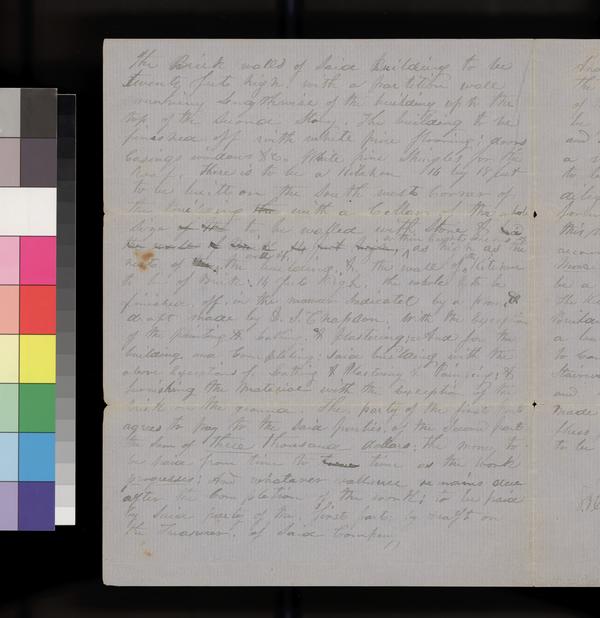 the Brick walls of Said Building to be
twenty feet high. with a partition wall
running lengthwise of the building up to the
top of the Second Story. the building to be
finished off with white pine flooring; doors
Casings windows &c. White pine Shingles for the
Roof, there is to be a Kitchen 16 by 18 feet
to be built on the South west Corner of
the building with a Cellar of the whole
Size to be walled with Stone &
as high as the
rest of the building. & the wall of Kitchen
to be of Brick; 14 feet high. the whole to be
finished off, in the manner Indicated by a plan &
draft made by D. S. Chapson. With the exception
of the painting & Lathing & Plastering; And for the
building and Completing said building with the
above exception of Lathing & Plastering & Painting; &
furnishing the Material with the exception of the
brick on the ground The party of the first part
agrees to pay to the said parties of the Second part
the Sum of three thousand dollars; the money to
be paid from time to time as the work
progresses; And whatever ballance remains due
after the Completion of the work; to be paid
by Said party of the first part; by draft on
the Treasurer, of Said Company
the
of
be
and
a
to
this
be a
a
and
made
to be